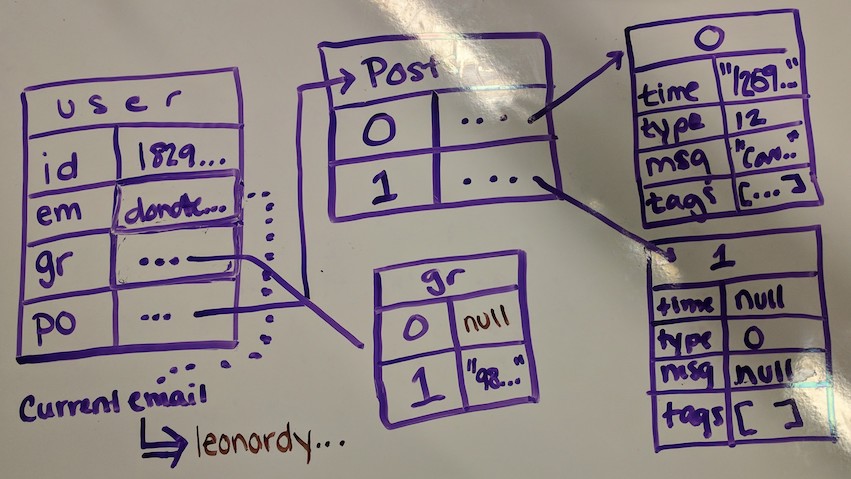 user
id 1829...
em donote...
gr ....
po ...
Current email
leonardy...
Post
0 ....
1 ....
gr
0 null
1 "98..."
0
time "1259..."
type 12
msg "Can.."
tags [...]
1
time null
type 0
msg null
tags [ ]